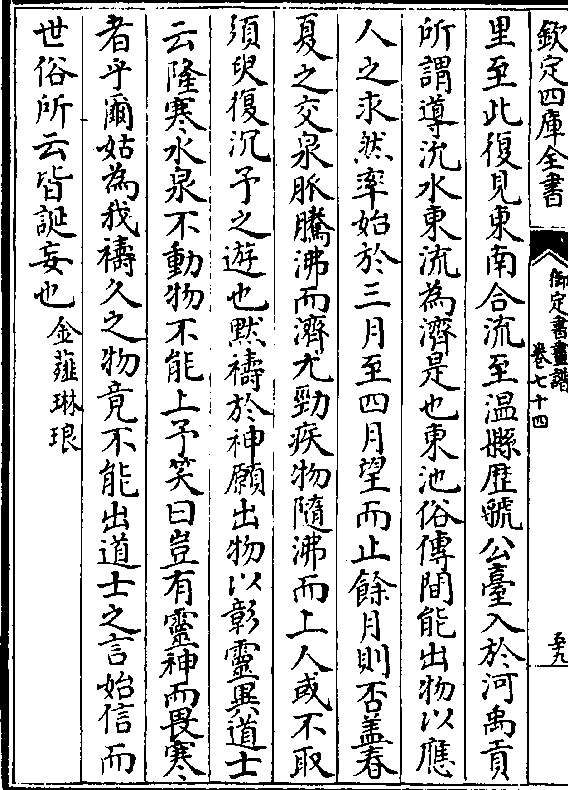 欽定四庫全書
御定書畫譜
卷七十四
五九
里至此復見東南合流至温縣歴虢公臺入於河禹貢
所謂導沇水東流為濟是也東池俗傳間能出物以應
人之求然率始於三月至四月望而止餘月則否盖春
夏之交泉脈騰沸而濟尤勁疾物隨沸而上人或不取
須臾復沉予之遊也黙禱於神願出物以彰靈異道士
云隆寒水泉不動物不能上予笑曰豈有靈神而畏寒
者乎爾姑為我禱久之物竟不能出道士之言始信而
世俗所云皆誕妄也金薤琳琅